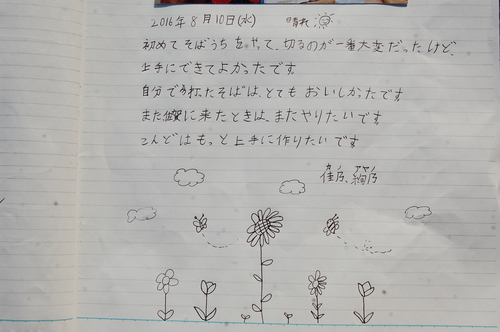 2016年8月10日(水) 晴れ
初めてそばうちをやって、切るのが一番大変だったけど、
上手にできてよかったです。
自分で打ったそばは、とてもおいしかったです。
また佐賀に来たときは、またやりたいです。
こんどはもっと上手に作りたいです。
佳乃、絢乃